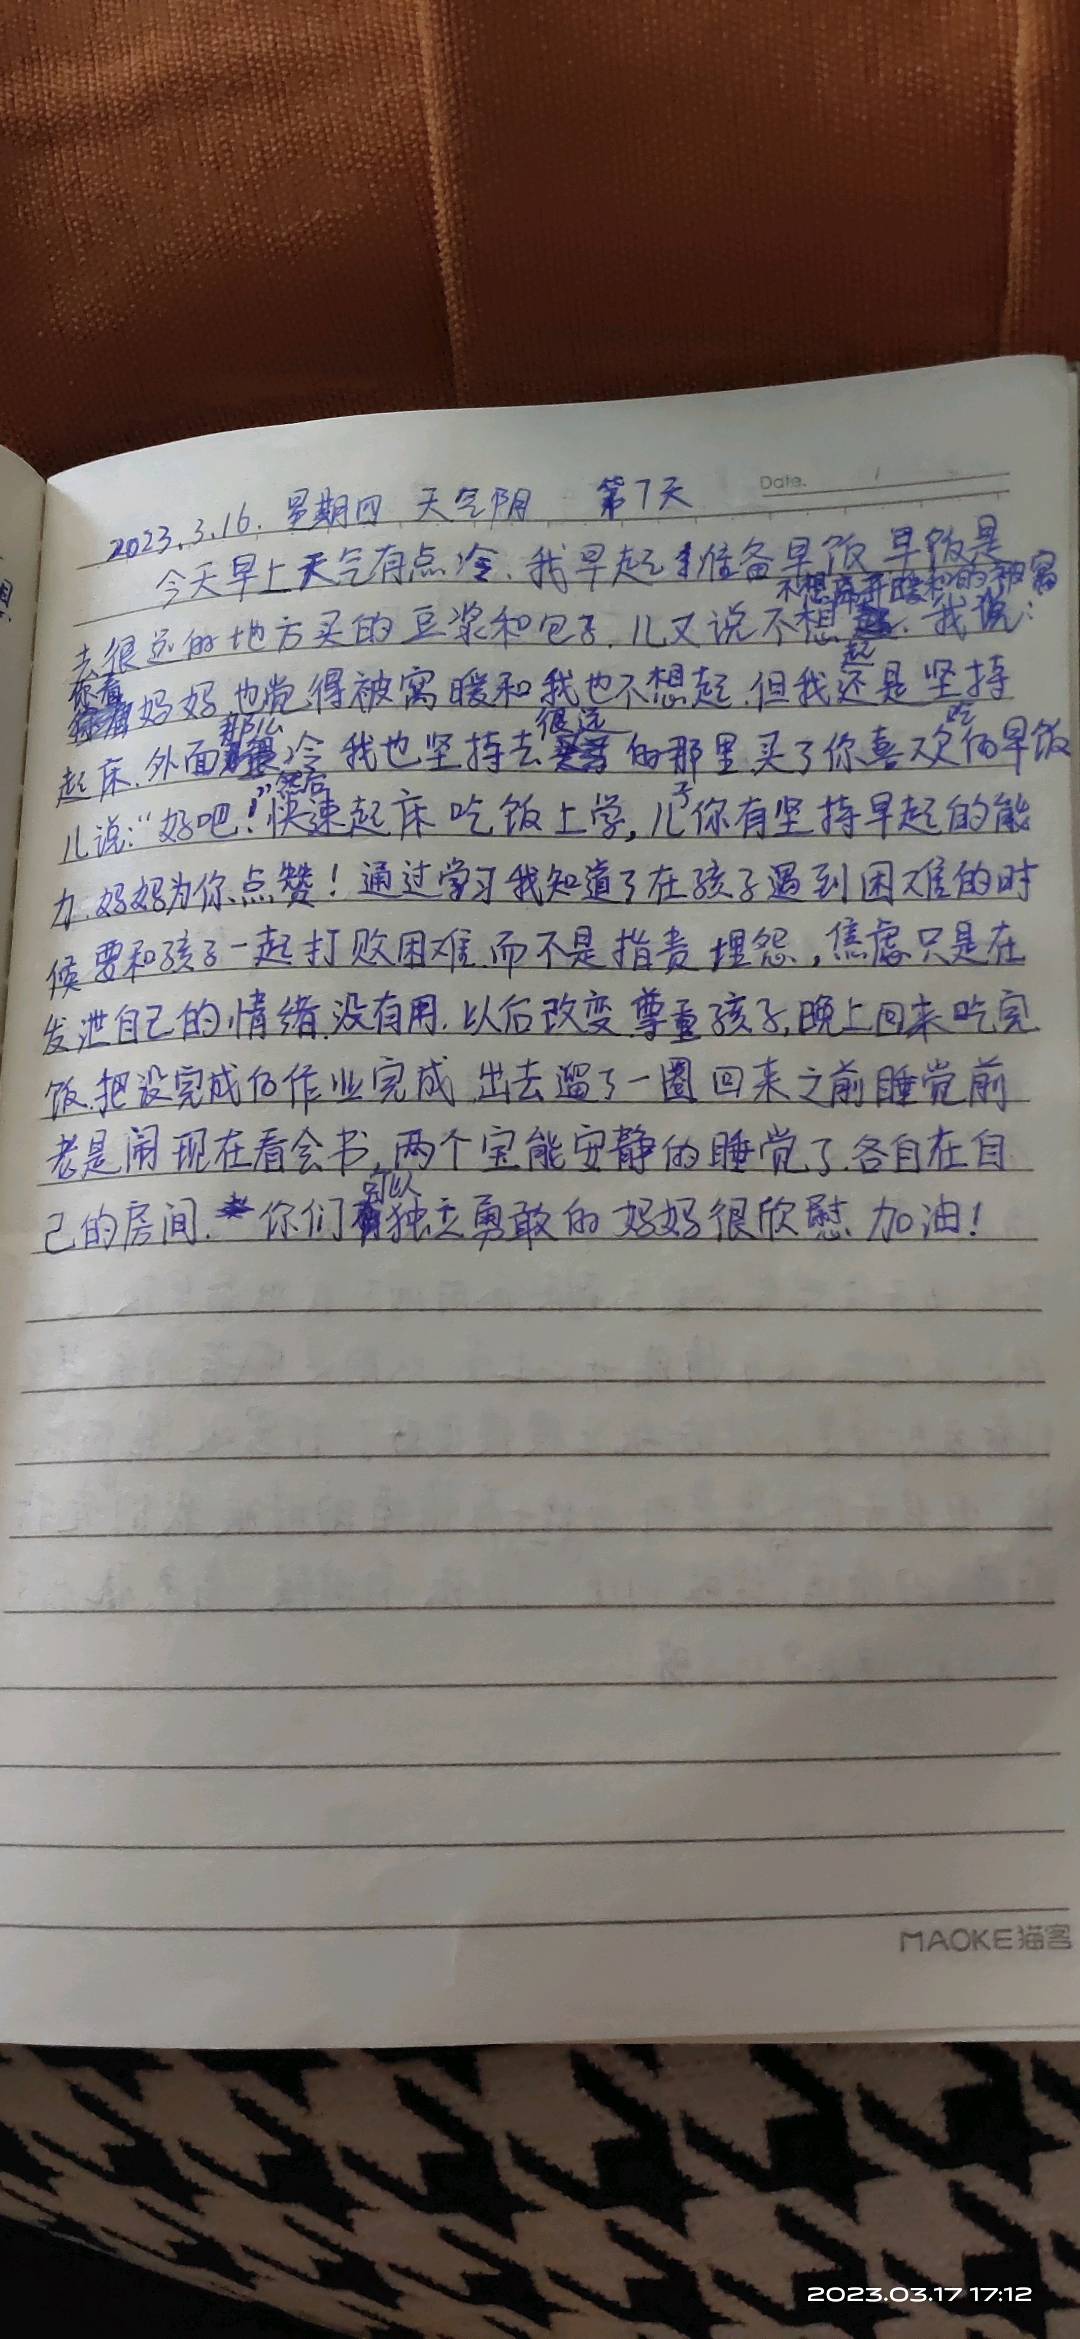 Date.
2023.3.16. 星期四 天气阴 第7天
今天早上天气有点冷、我早起准备早饭 早饭是
不想离开暖和的被窝
去很远的地方买的豆浆和包子.儿又说不想起.我说:
你看妈妈也觉得被窝暖和我也不想起.但我还是坚持
起床.外面那么冷 我也坚持去很远的那里买了你喜欢吃的早饭
儿说:“好吧!”然后快速起床吃饭上学,儿子你有坚持早起的能
力.妈妈为你点赞!通过学习我知道了在孩子遇到困难的时
候要和孩子一起打败困难.而不是指责埋怨,焦虑只是在
发泄自己的情绪.没有用.以后改变.尊重孩子,晚上回来吃完
饭.把没完成的作业完成.出去遛了一圈回来之前睡觉前
老是闹现在看会书,两个宝能安静的睡觉了.各自在自
己的房间.你们可以独立勇敢的妈妈很欣慰.加油!
MAOKE猫客
2023.03.17 17:12